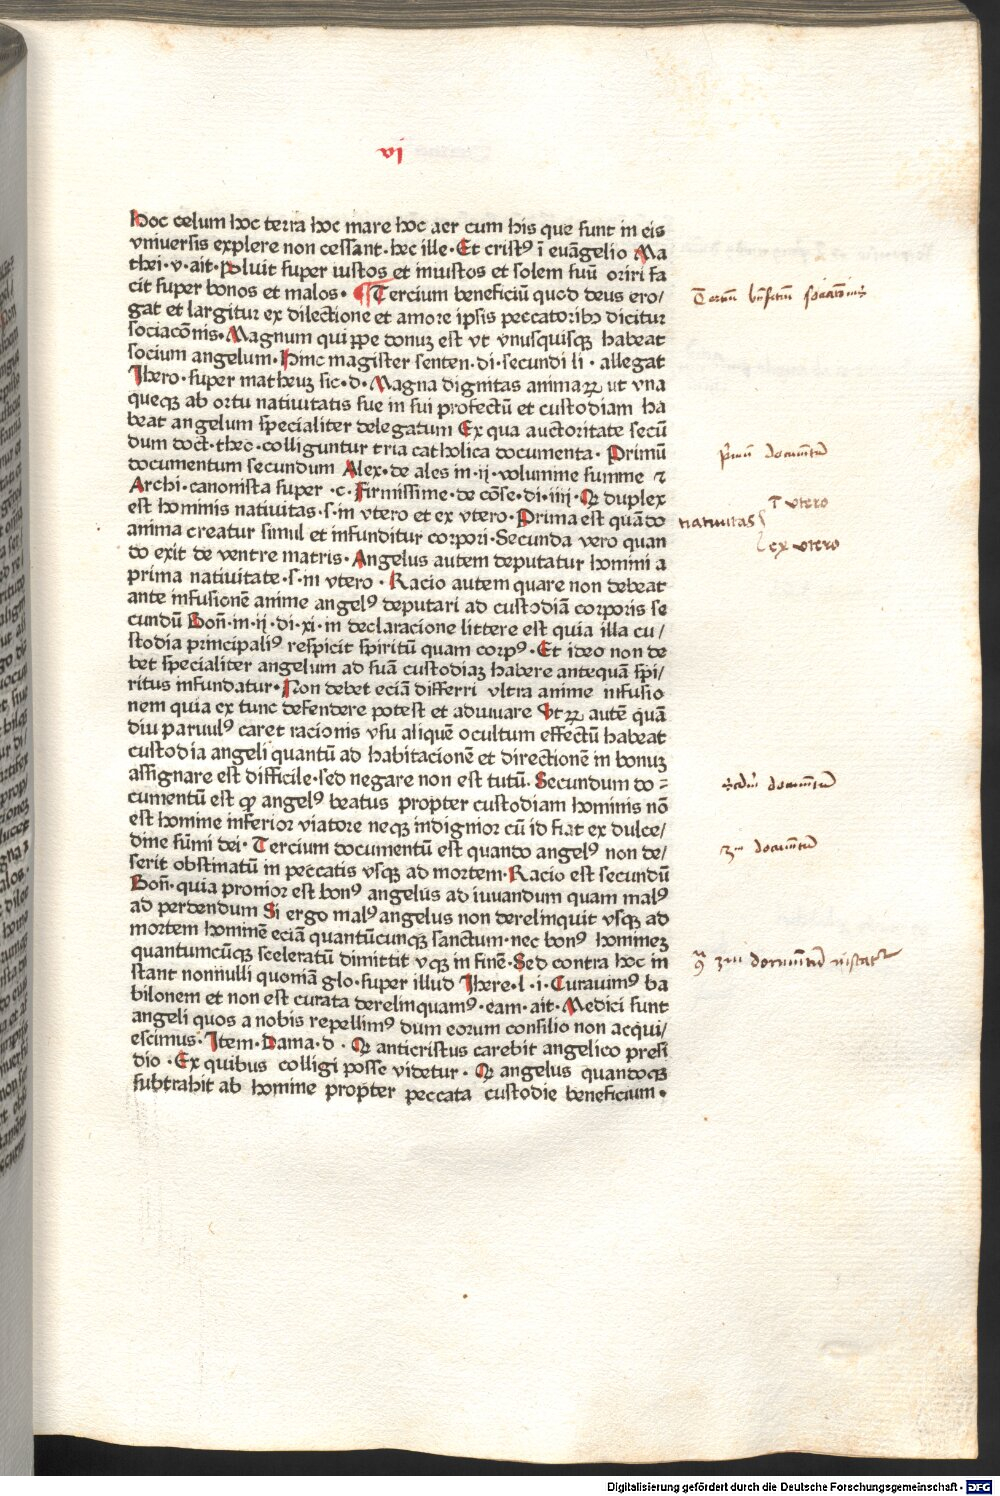 vi
Hoc celum hoc terra hoc mare hoc aer cum his que sunt in eis
vniuersis explere non cessant·hec ille·Et crist⁹ ī euāgelio Ma
thei·v·ait·Pluit super iustos et iniustos et solem suū oriri fa
cit super bonos et malos· ¶Tercium beneficiū quod deus ero/
gat et largitur ex dilectione et amore ipsis peccatoribꝫ dicitur
sociacōnis·Magnum quippe donuꝫ est vt vnusquisqꝫ habeat
socium angelum·Hinc magister senten·di·secundi li·allegat
Ihero·super matheuꝫ sic·d·Magna dignitas animaꝝ ut vna
queqꝫ ab ortu natiuitatis sue in sui profectū et custodiam ha
beat angelum specialiter delegatum Ex qua auctoritate secū
dum doct·theo·colliguntur tria catholica documenta·Primū
documentum secundum Alex·de ales in·ii·volumine summe ⁊
Archi·canonista super·c·Firmissime·de cōse·di·iiii·Q duplex
est hominis natiuitas·s·in vtero et ex vtero·Prima est quādo
anima creatur simul et infunditur corpori·Secunda vero quan
do exit de ventre matris·Angelus autem deputatur homini a
prima natiuitate·s·in vtero·Racio autem quare non debeat
ante infusionē anime angel⁹ deputari ad custodiā corporis se
cundū Bon̄·in·ii·di·xi·in declaracione littere est quia illa cu/
stodia principali⁹ respicit spiritū quam corp⁹·Et ideo non de
bet specialiter angelum ad suā custodiaꝫ habere antequā spi/
ritus infundatur·Non debet eciā differri vltra anime infusio
nem quia ex tunc defendere potest et adiuuare Vtꝝ autē quā
diu paruul⁹ caret racionis vsu aliquē ocultum effectū habeat
custodia angeli quantū ad habitacionē et directionē in bonuꝫ
assignare est difficile·sed negare non est tutū·Secundum do=
cumentū est ꝙ angel⁹ beatus propter custodiam hominis nō
est homine inferior viatore neqꝫ indignior cū id fiat ex dulce/
dine sūmi dei·Tercium documentū est quando angel⁹ non de/
serit obstinatū in peccatis vsqꝫ ad mortem·Racio est secundū
Bon̄·quia pronior est bon⁹ angelus ad iuuandum quam mal⁹
ad perdendum Si ergo mal⁹ angelus non derelinquit vsqꝫ ad
mortem hominē eciā quantūcunqꝫ sanctum·nec bon⁹ homineꝫ
quantumcūqꝫ sceleratū dimittit vqꝫ in finē·Sed contra hoc in
stant nonnulli quoniā glo·super illud Ihere·l·i·Curauim⁹ ba
bilonem et non est curata derelinquam⁹·eam·ait·Medici sunt
angeli quos a nobis repellim⁹ dum eorum consilio non acqui/
escimus·Item·Dama·d·Q anticristus carebit angelico presi
dio·Ex quibus colligi posse videtur·Q angelus quandoqꝫ
subtrahit ab homine propter peccata custodie beneficium·
Tertiū bn̄ficiū sociatōnis
prīmū documētū
natiuitas
ī vtero
ex vtero
scd̄m documētū
3m documētū
9ͣ 3m documētū īstatr
Digitalisierung gefördert durch die Deutsche Forschungsgemeinschaft - DFG